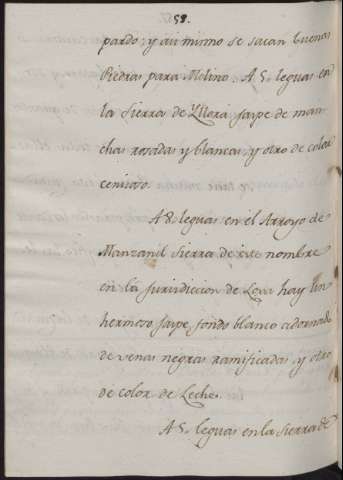 58.
pardo; y asi mismo se sacan buenas
Piedras para Molino. A 5. leguas en
la Sierra de Yllora, Jaspe de man
chas rosadas y blancas, y otro de color
ceniciso.
A 8. leguas en el Arroyo de
Manzanil Sierra de este nombre
en la jurisdiccion de Loxa hay Un
hermoso Jaspe, fondo blanco adornado
de venas negras ramificadas, y otro
de color de Leche.
A 5. leguas en la Sierra de